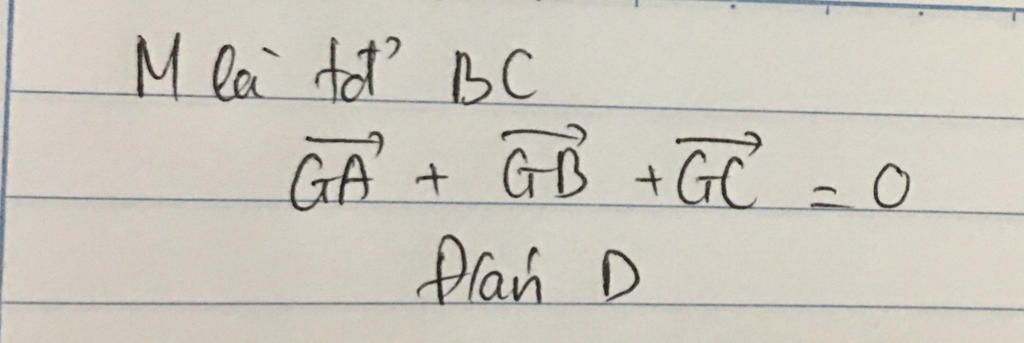 M là tđ' BC
$\overrightarrow{GA} + \overrightarrow{GB} + \overrightarrow{GC} = 0$
Đ/án D